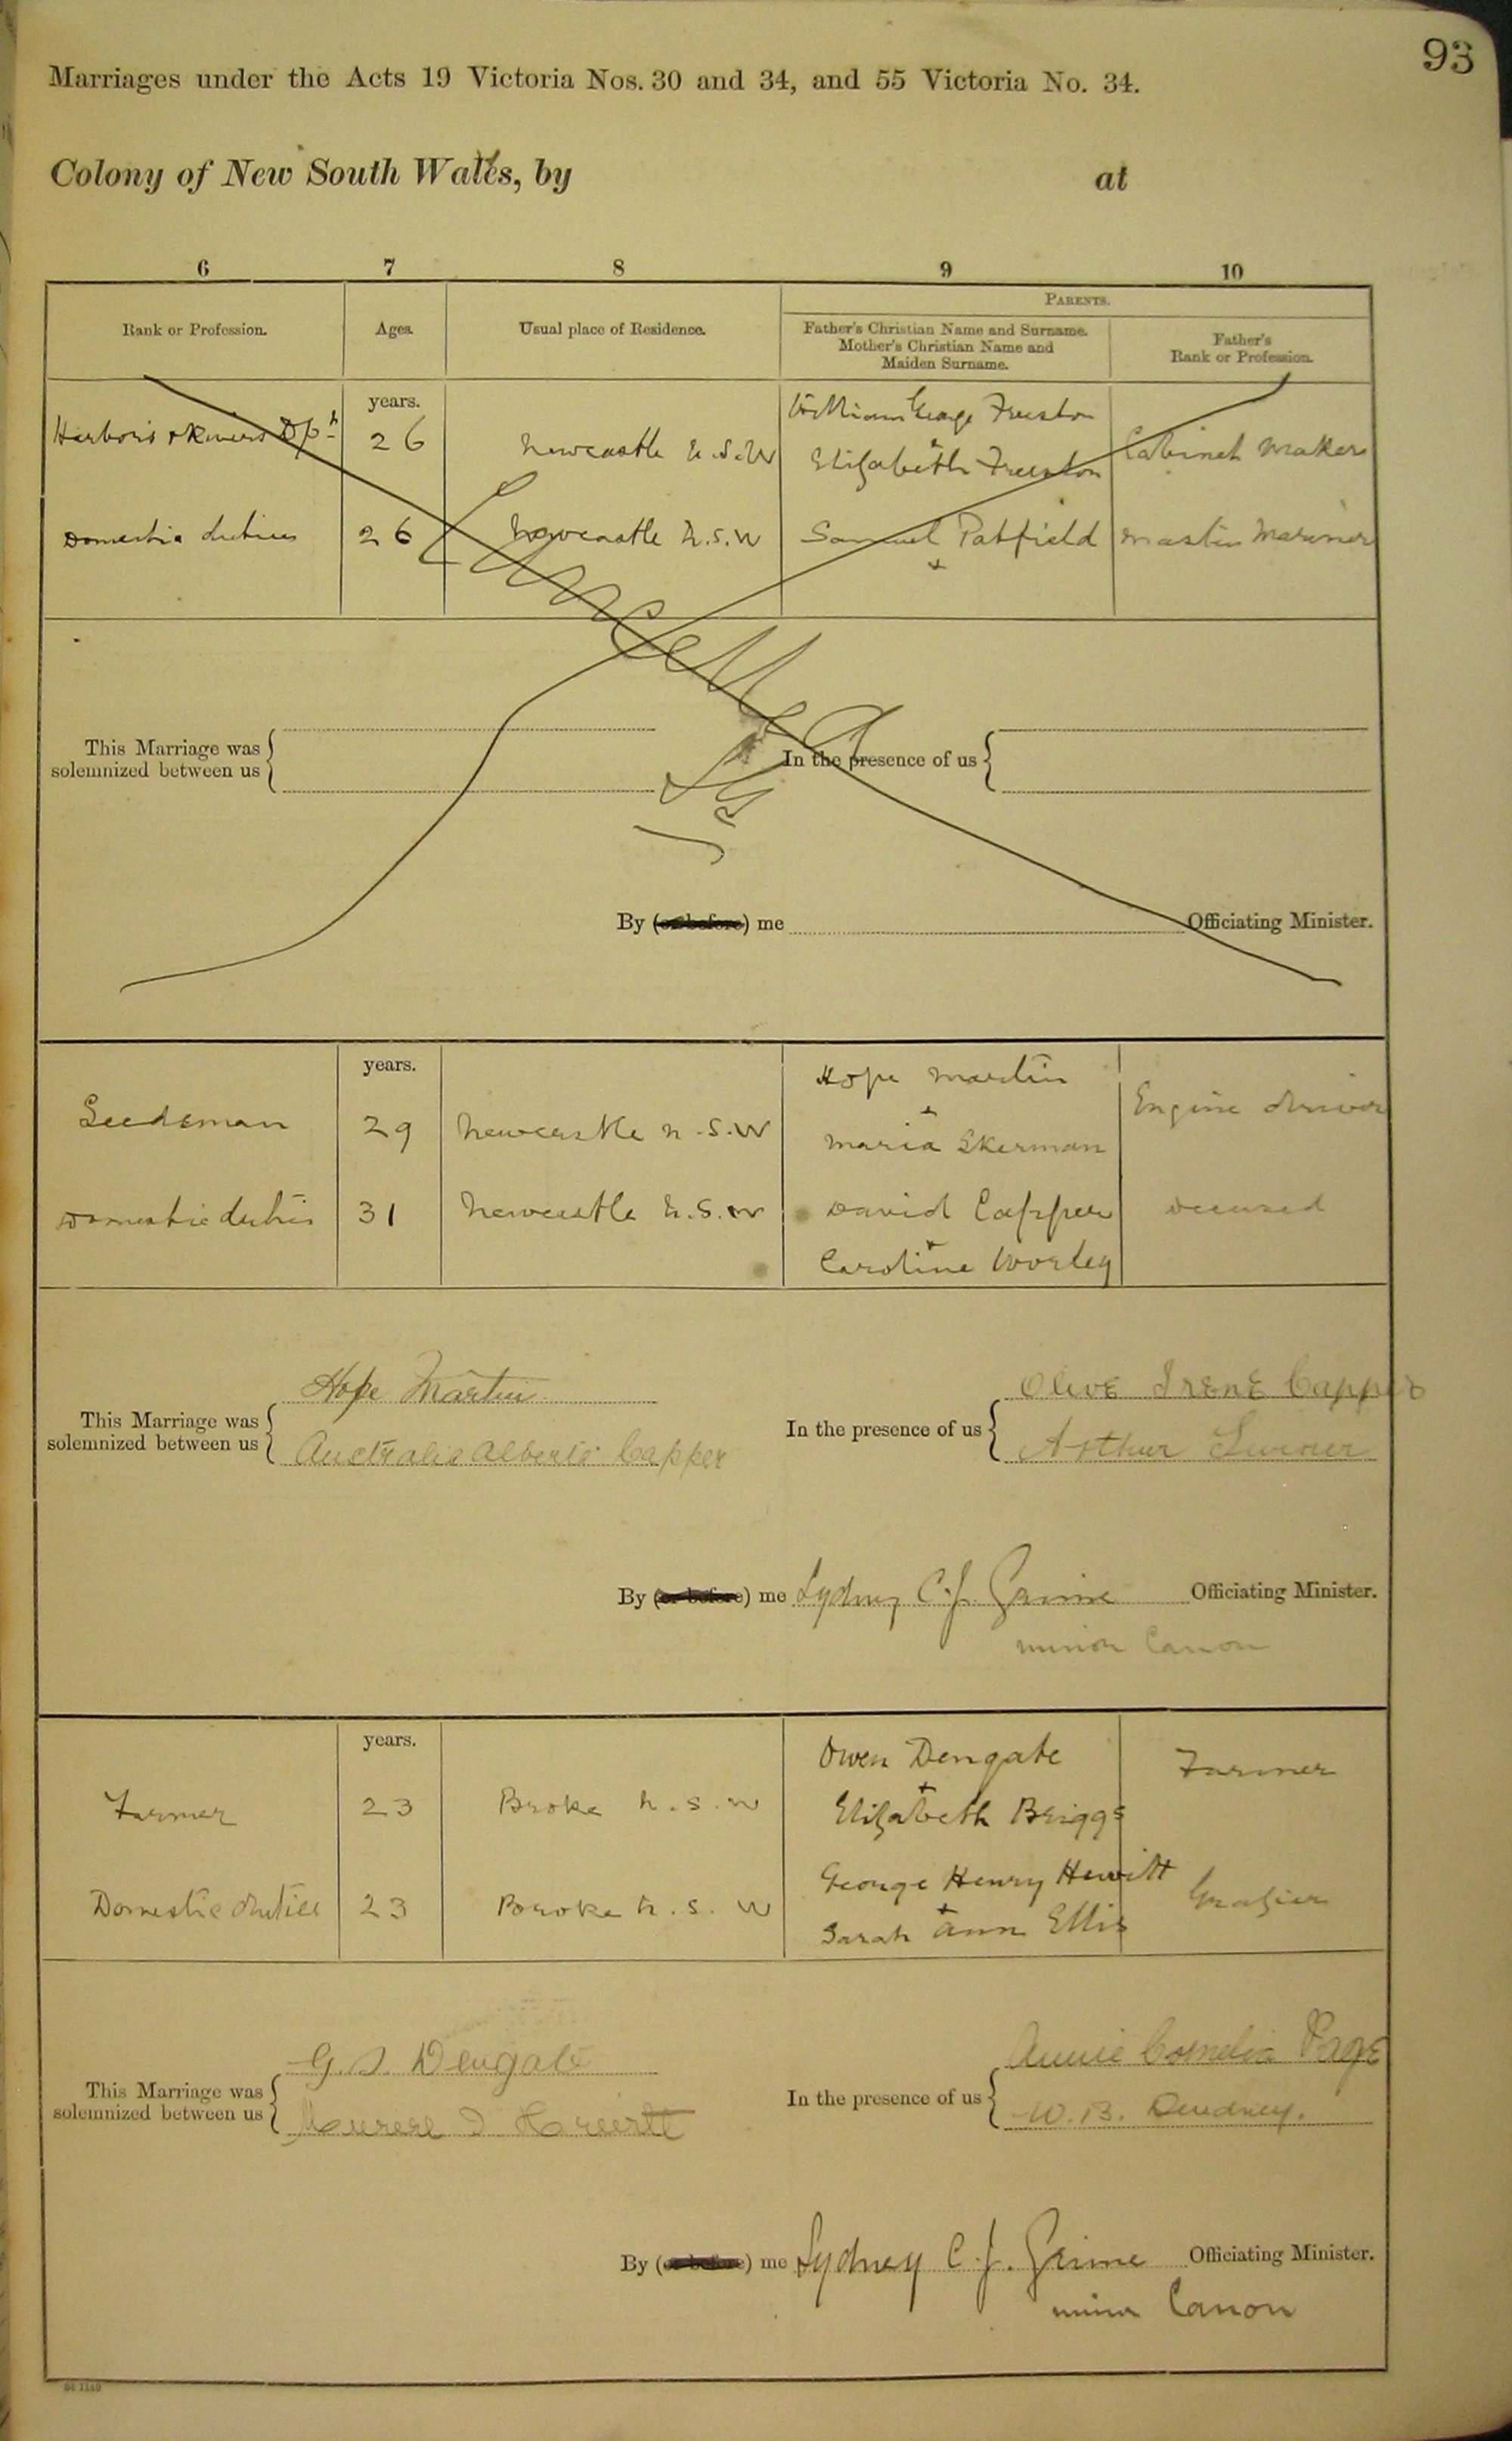 93
Marriages under the Acts 19 Victoria Nos. 30 and 34, and 55 Victoria No. 34.
Colony of New South Wales, by at
6 7 8 9 10
Parents.
Rank or Profession. Ages. Usual place of Residence. Father's Christian Name and Surname. Mother's Christian Name and Maiden Surname. Father's Rank or Profession.
years.
Harbors & Rivers Dpt 26 Newcastle N.S.W William George Freeston
+
Elizabeth Freeston Cabinet Maker
Domestic duties 26 Newcastle N.S.W Samuel Patfield Master Mariner
+
Cancelled
This Marriage was solemnized between us In the presence of us
By (or before) me Officiating Minister.
years.
Seedsman 29 Newcastle N.S.W Hope Martin Engine driver
+
Maria Skerman
Domestic duties 31 Newcastle N.S.W David Capper deceased
+
Caroline Worley
This Marriage was solemnized between us Hope Martin
Australia Alberta Capper
In the presence of us Olive Irene Capper
Arthur Turner
By (or before) me Sydney C. J. Grime Officiating Minister.
Minor Canon
years.
Farmer 23 Broke N.S.W Owen Dengate Farmer
+
Elizabeth Briggs
Domestic duties 23 Broke N.S.W George Henry Hewitt Grazier
+
Sarah Ann Ellis
This Marriage was solemnized between us G. S. Dengate
Hewitt
In the presence of us Annie Cornelia Page
W. B. Deudney.
By (or before) me Sydney C. J. Grime Officiating Minister.
Minor Canon